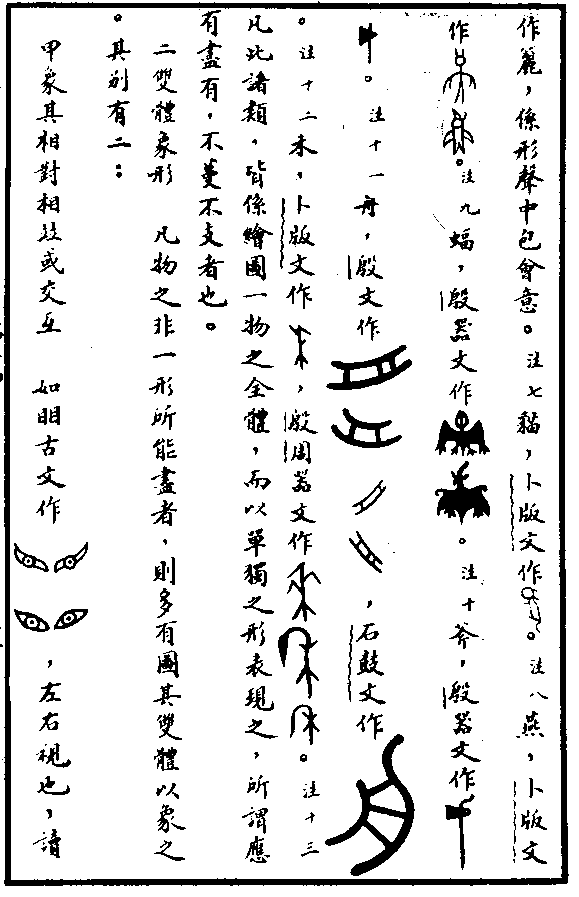 作麗，係形聲中包會意。注七貓，卜版文作。注八燕，卜版文
作。注九蝠，殷器文作。注十斧，殷器文作
。注十一舟，殷文作，石鼓文作
。注十二禾，卜版文作，殷周器文作。注十三
凡此諸類，皆係繪圖一物之全體，而以單獨之形表現之，所謂應
有盡有，不蔓不支者也。
二雙體象形　凡物之非一形所能盡者，則多有圖其雙體以象之
。其別有二：
甲象其相對相竝或交互　如䀠古文作，左右視也，讀